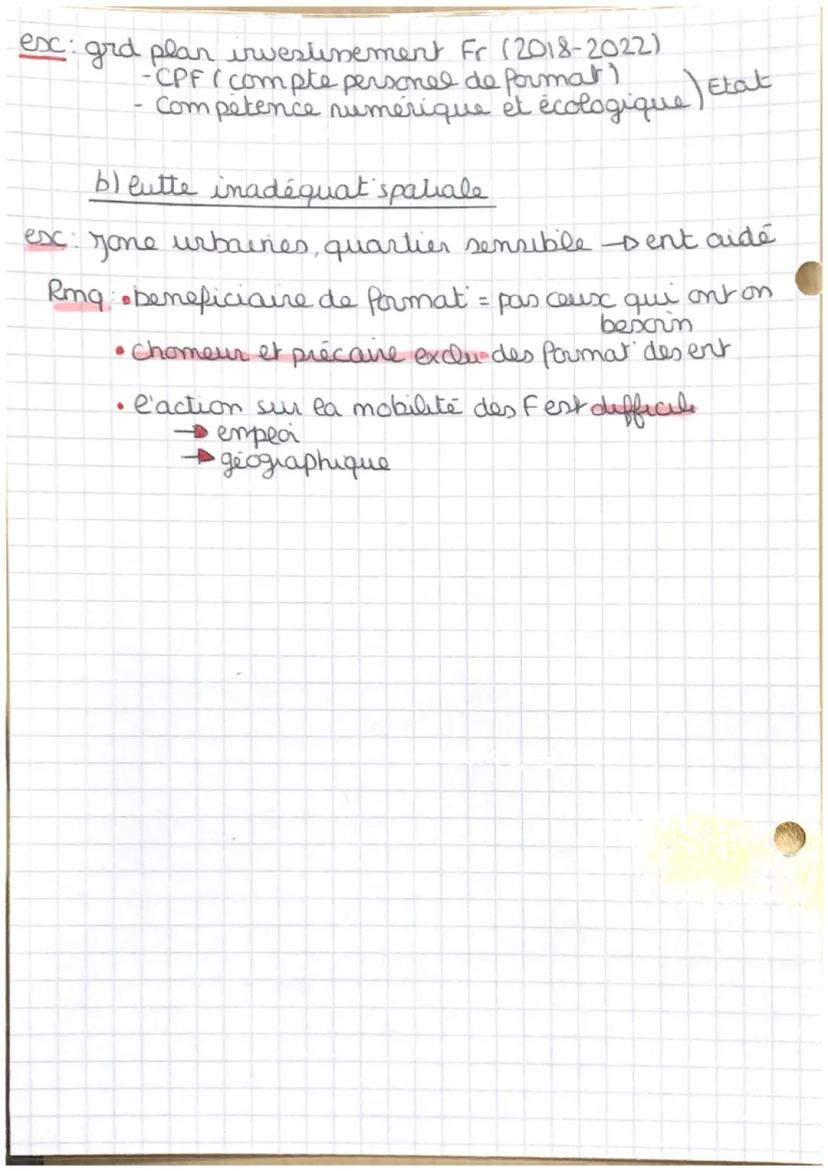 ex: grd plan investissement Fr (2018-2022)
- CPF (compte personel de format°)
- Compétence numérique et écologique) Etat
b) lutte inadéquat° spatiale
ex: zone urbaines, quartier sensible → ent aidé
Rmq: • beneficiaire de format° = pas ceux qui ont on
besoin
• chomeur et précaire exclu des format° des ent
• l'action sur la mobilité des F est difficile
→ emploi
→ géographique